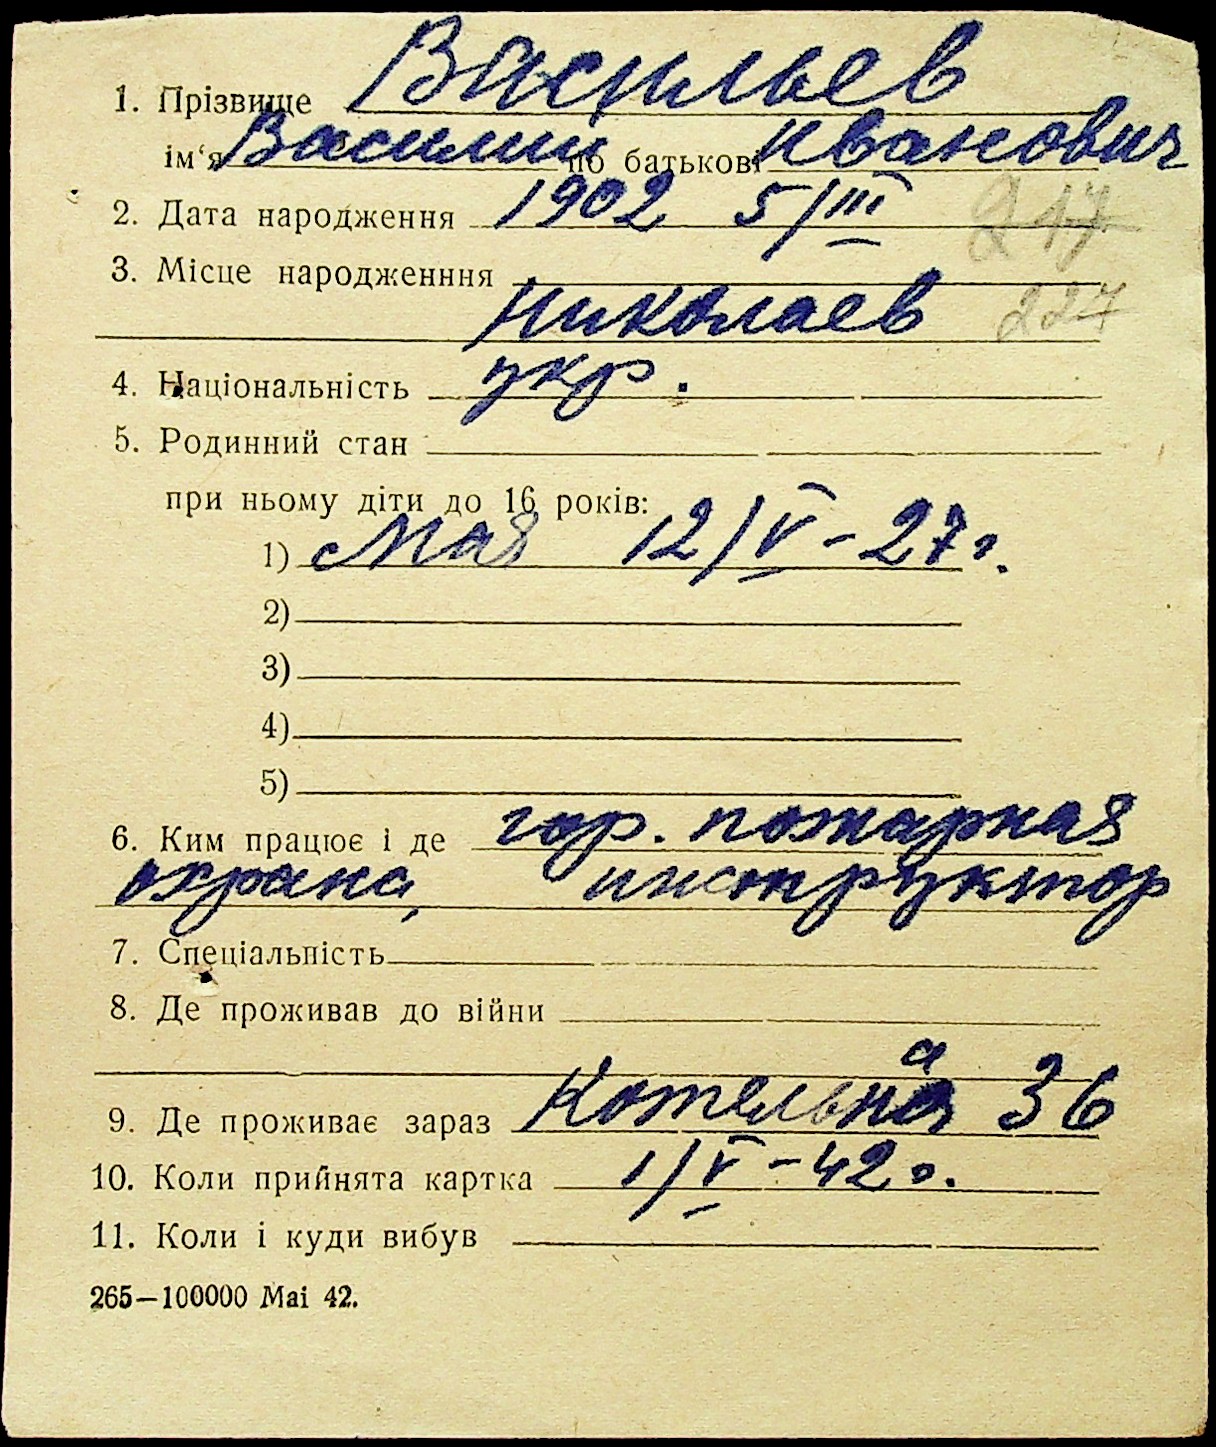 1. Прізвище Васильев
ім‘я Василий по батькові Иванович
2. Дата народження 1902 5/III
217
3. Місце народженння
Николаев 227
4. Національність укр.
5. Родинний стан
при ньому діти до 16 років:
1) Мая 12/V – 27 г.
2)
3)
4)
5)
6. Ким працює і де гор. пожарная
охрана, инструктор
7. Спеціальність
8. Де проживав до війни
а
9. Де проживає зараз Котельна 36
10. Коли прийнята картка 1/V – 42 г.
11. Коли і куди вибув
265—100000 Маі 42.